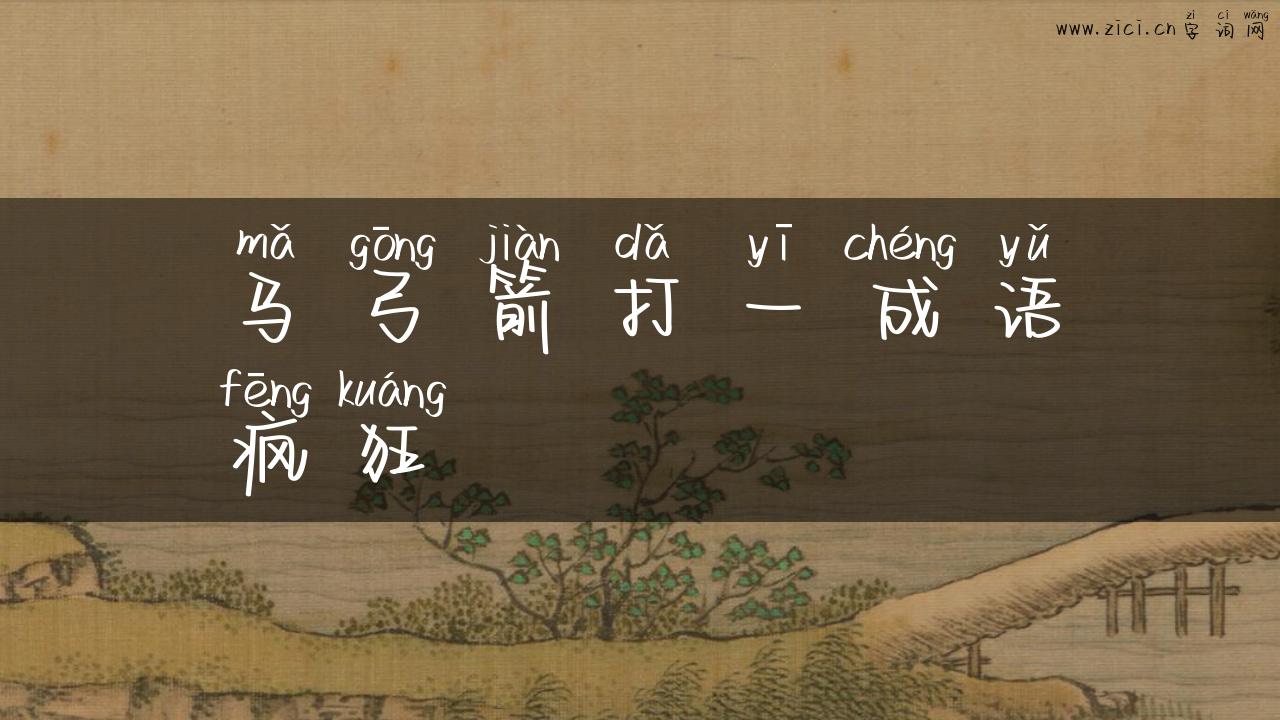 zì cí wǎng
www.zici.cn 字词网
mǎ gōng jiàn dǎ yī chéng yǔ
马弓箭打一成语
fēng kuáng
疯狂